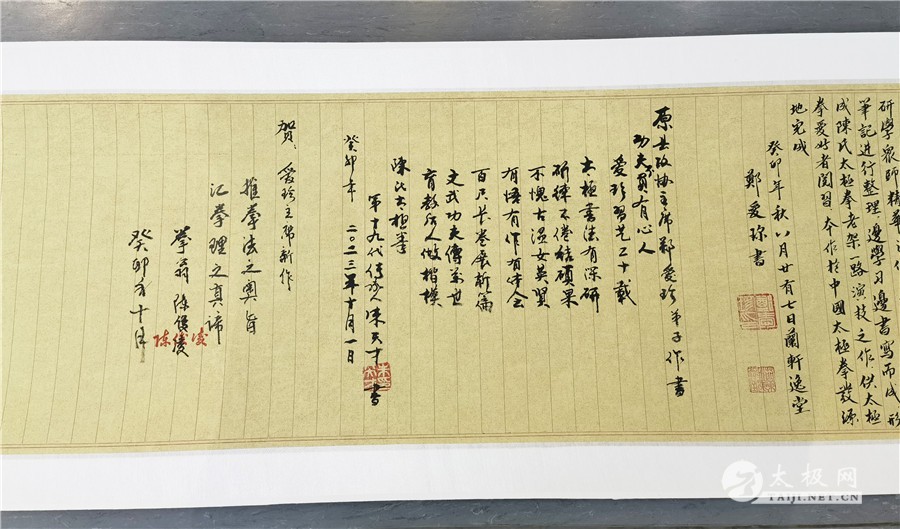 研學眾師精華之
筆記進行整理，邊學习邊書寫而成形
成陳氏太極拳老架一路演技之作供太極
拳爱好者閱習 本作於中國太極拳發源
地完成
癸卯年秋八月廿有七日蘭軒逸堂
鄭爱珍書
原县政协主席郑爱珍弟子作書
功夫不負有心人
爱珍習艺二十載
太極書法有深研
研練不倦结碩果
不愧古温女英賢
有悟有作有体会
百尺长卷展新篇
文武功夫傳万世
育教后人做楷模
陈氏太極拳
第十九代传承人朱天才書
癸卯年 二〇二三年十月一日
賀：爱珍主席新作
推拳法之奥旨
汇拳理之真諦
拳翁 陈俊凌
陈俊凌
癸卯年十月
太极网
TAIJI.NET.CN